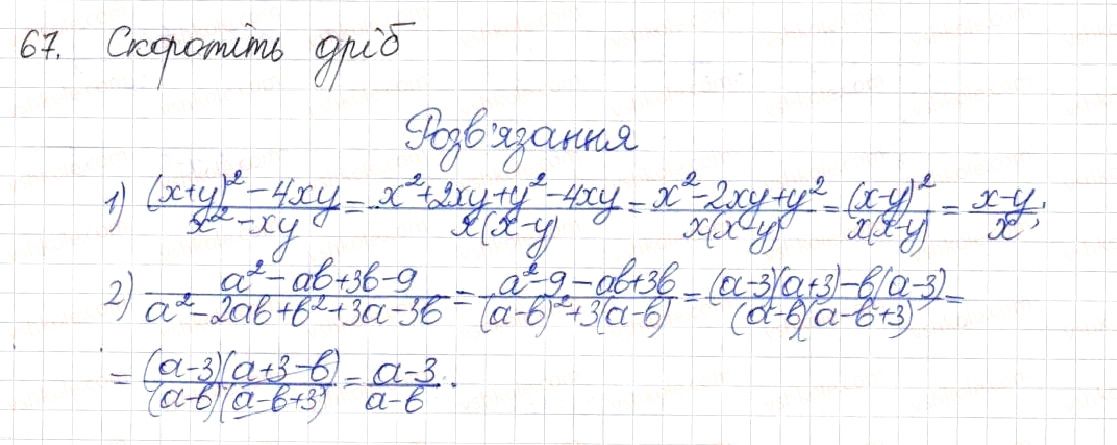 67. Скоротіть дріб
Розв'язання
1) \frac{(x+y)^2-4xy}{x^2-xy} = \frac{x^2+2xy+y^2-4xy}{x(x-y)} = \frac{x^2-2xy+y^2}{x(x-y)} = \frac{(x-y)^2}{x(x-y)} = \frac{x-y}{x};
2) \frac{a^2-ab+3b-9}{a^2-2ab+b^2+3a-3b} = \frac{a^2-9-ab+3b}{(a-b)^2+3(a-b)} = \frac{(a-3)(a+3)-b(a-3)}{(a-b)(a-b+3)} =
= \frac{(a-3)(a+3-b)}{(a-b)(a-b+3)} = \frac{a-3}{a-b}.